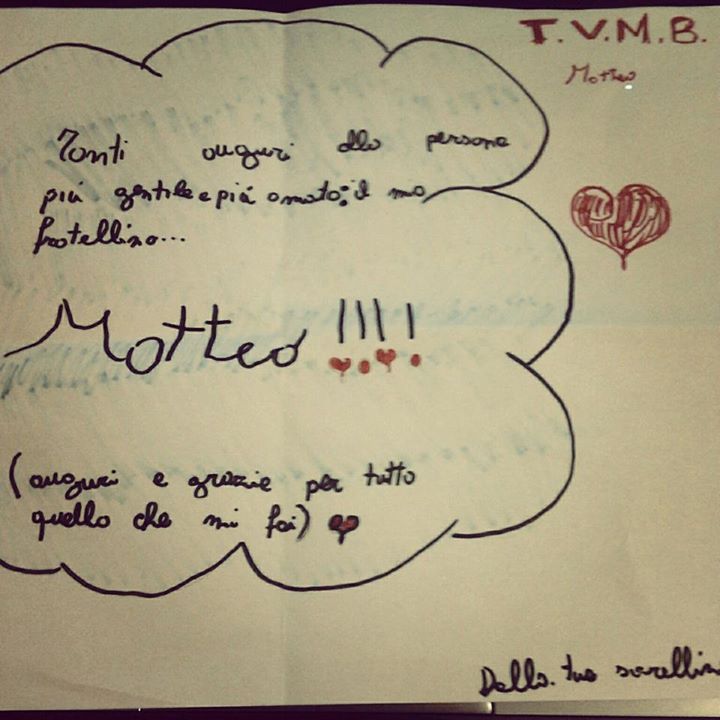 T.V.M.B.
Matteo
Tanti auguri alla persona
più gentile e più amata: il mio
fratellino...
Matteo !!!!
(auguri e grazie per tutto
quello che mi fai)
Dalla tua sorellin